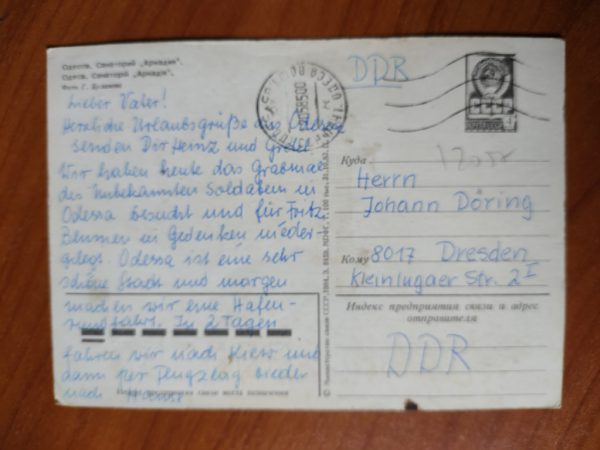 Одесса. Санаторий „Аркадия".
Одеса. Санаторій „Аркадія".
Фото
Lieber Vater!
Herzliche Urlaubsgrüße aus Odessa
senden Dir Heinz und Gretel
Wir haben heute das Grabmal
des Unbekannten Soldaten in
Odessa besucht und für Fritz
Blumen in Gedenken nieder-
gelegt. Odessa ist eine sehr
schöne Stadt und morgen
machen wir eine Hafen-
rundfahrt. In 2 Tagen
fahren wir nach Kiew und
dann per Flugzeug wieder
nach
DDR
Куда
Herrn
Johann Döring
Кому
8017 Dresden
Kleinlugaer Str. 2
Индекс предприятия связи и адрес
отправителя
DDR